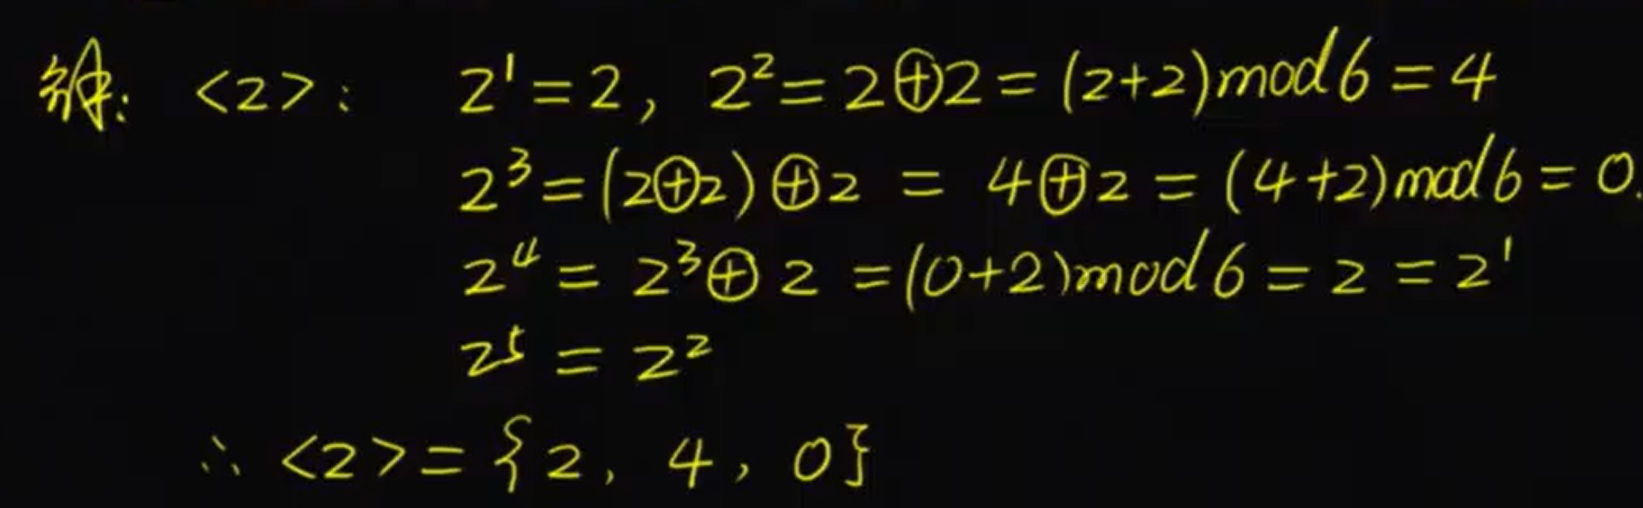 解: <2>: 2¹=2, 2²=2⊕2=(2+2)mod6=4
2³=(2⊕2)⊕2 = 4⊕2=(4+2)mod6=0.
2⁴=2³⊕2=(0+2)mod6=2=2¹
2⁵=2²
∴<2>={2, 4, 0}